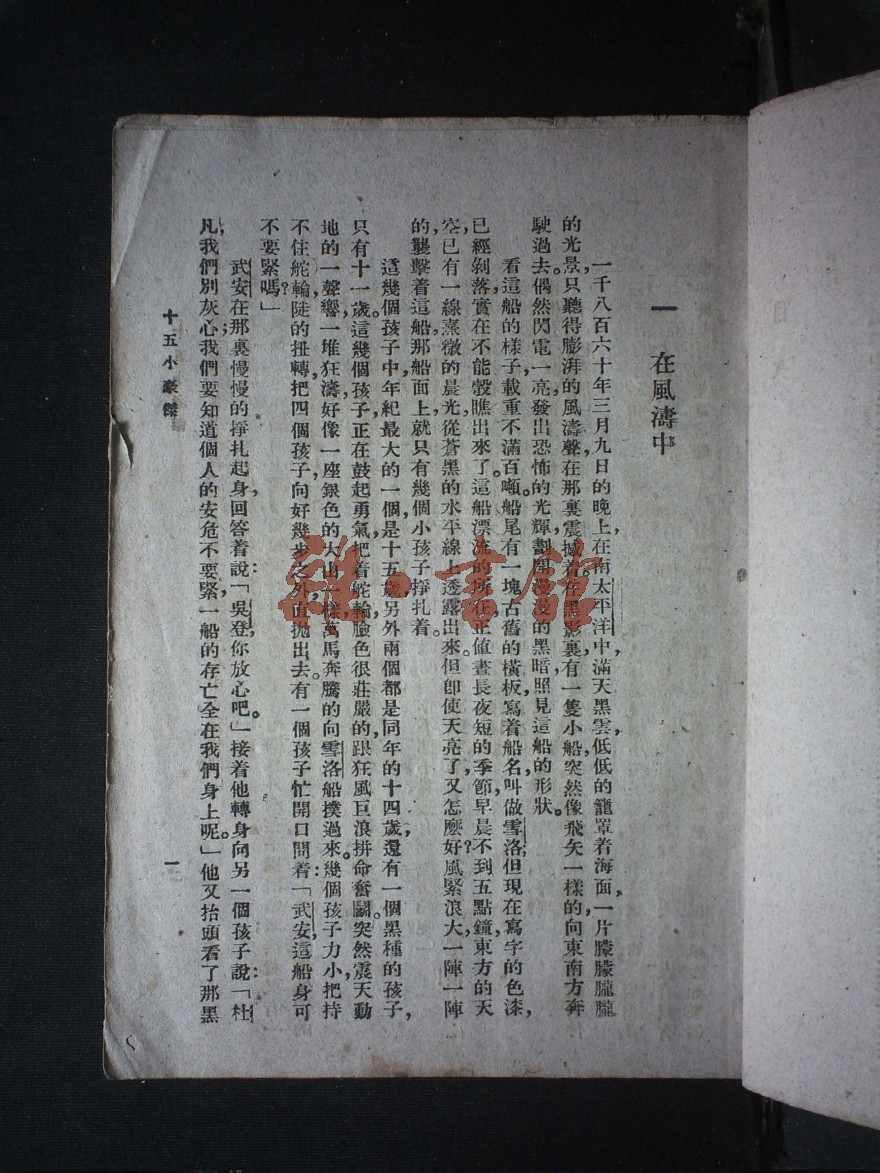 一 在風濤中
一千八百六十年三月九日的晚上，在南太平洋中，滿天黑雲，低低的籠罩着海面，一片朦朦朧朧
的光景，只聽得膨湃的風濤聲，在那裏震撼着。在黑影裏，有一隻小船，突然像飛矢一樣的，向東南方奔
駛過去。偶然閃電一亮，發出恐怖的光輝，劃開漫漫的黑暗，照見這船的形狀。
看這船的樣子，載重不滿百噸。船尾有一塊古舊的橫板，寫着船名，叫做雪洛，但現在寫字的色漆，
已經剝落，實在不能彀瞧出來了。這船漂流的所在，正値晝長夜短的季節，早晨不到五點鐘，東方的天
空，已有一線熹微的晨光，從蒼黑的水平線上透露出來。但卽使天亮了，又怎麽好？風緊浪大，一陣一陣
的襲擊着這船，那船面上就只有幾個小孩子掙扎着。
這幾個孩子中，年紀最大的一個，是十五歲，另外兩個，都是同年的十四歲，還有一個黑種的孩子，
只有十一歲。這幾個孩子，正在鼓起勇氣，把着舵輪，臉色很莊嚴的，跟狂風巨浪拚命奮鬭。突然震天動
地的一聲響，一堆狂濤，好像一座銀色的大山一樣，萬馬奔騰的向雪洛船撲過來。幾個孩子力小，把持
不住，舵輪陡的扭轉，把四個孩子向好幾步之外直拋出去。有一個孩子忙開口問着：「武安，這船身可
不要緊嗎？」
武安在那裏慢慢的掙扎起身，回答着說：「吳登，你放心吧。」接着他轉身向另一個孩子說：「杜
凡，我們別灰心；我們要知道個人的安危不要緊，一船的存亡全在我們身上呢。」他又抬頭看了那黑
十五小豪傑
一
雜·書館